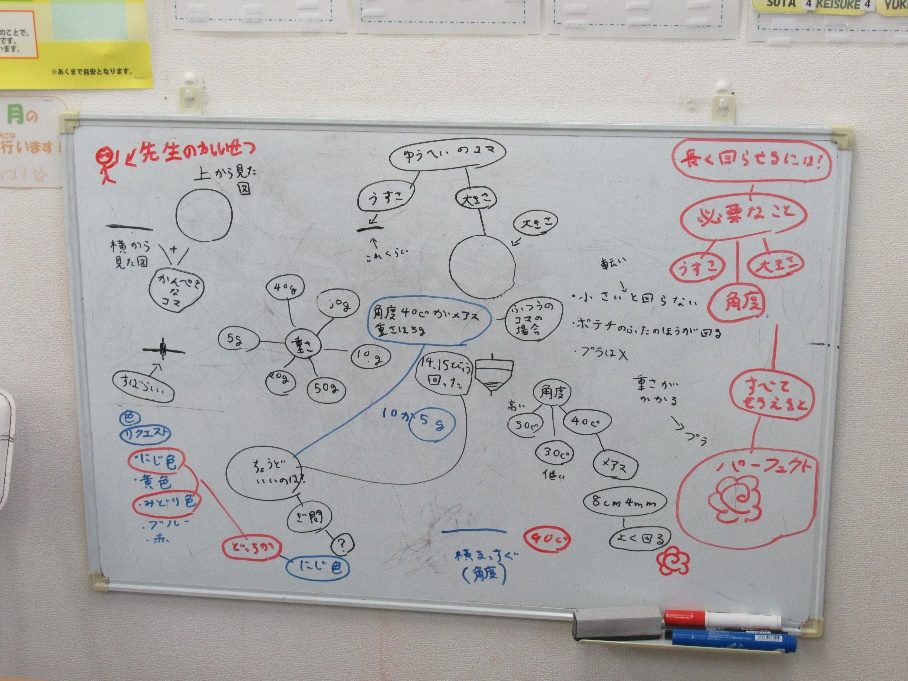 SUTA 4 KEISUKE 4 YUK
のことで、
です。
います。
※あくまで目安となります。
月の
行います
先生のかいせつ
上から見た
図
横から
見た図
+
かんぺきな
コマ
すばらしい
ゆうへいのコマ
うすさ
大きさ
これくらい
大きさ
長く回らせるには!
必要なこと
うすさ
角度
大きさ
すべて
そろえると
パーフェクト
重さ
40g
30g
5g
10g
20g
50g
角度40c°かメアス
重さは5g
ふつうの
コマの
場合
14,15びょう
回った
10か5g
・小さいと回らない
・ポテチのふたのほうが回る
・プラは×
重さが
かかる
プラ
角度
高い
50c°
30c°
低い
40c°
メアス
8cm4mm
よく回る
ちょうど
いいのは?
ぎ問
?
色
リクエスト
・にじ色
・黄色
・みどり色
・ブルー
・赤
どっちか
にじ色
横まっすぐ
(角度)
90c°